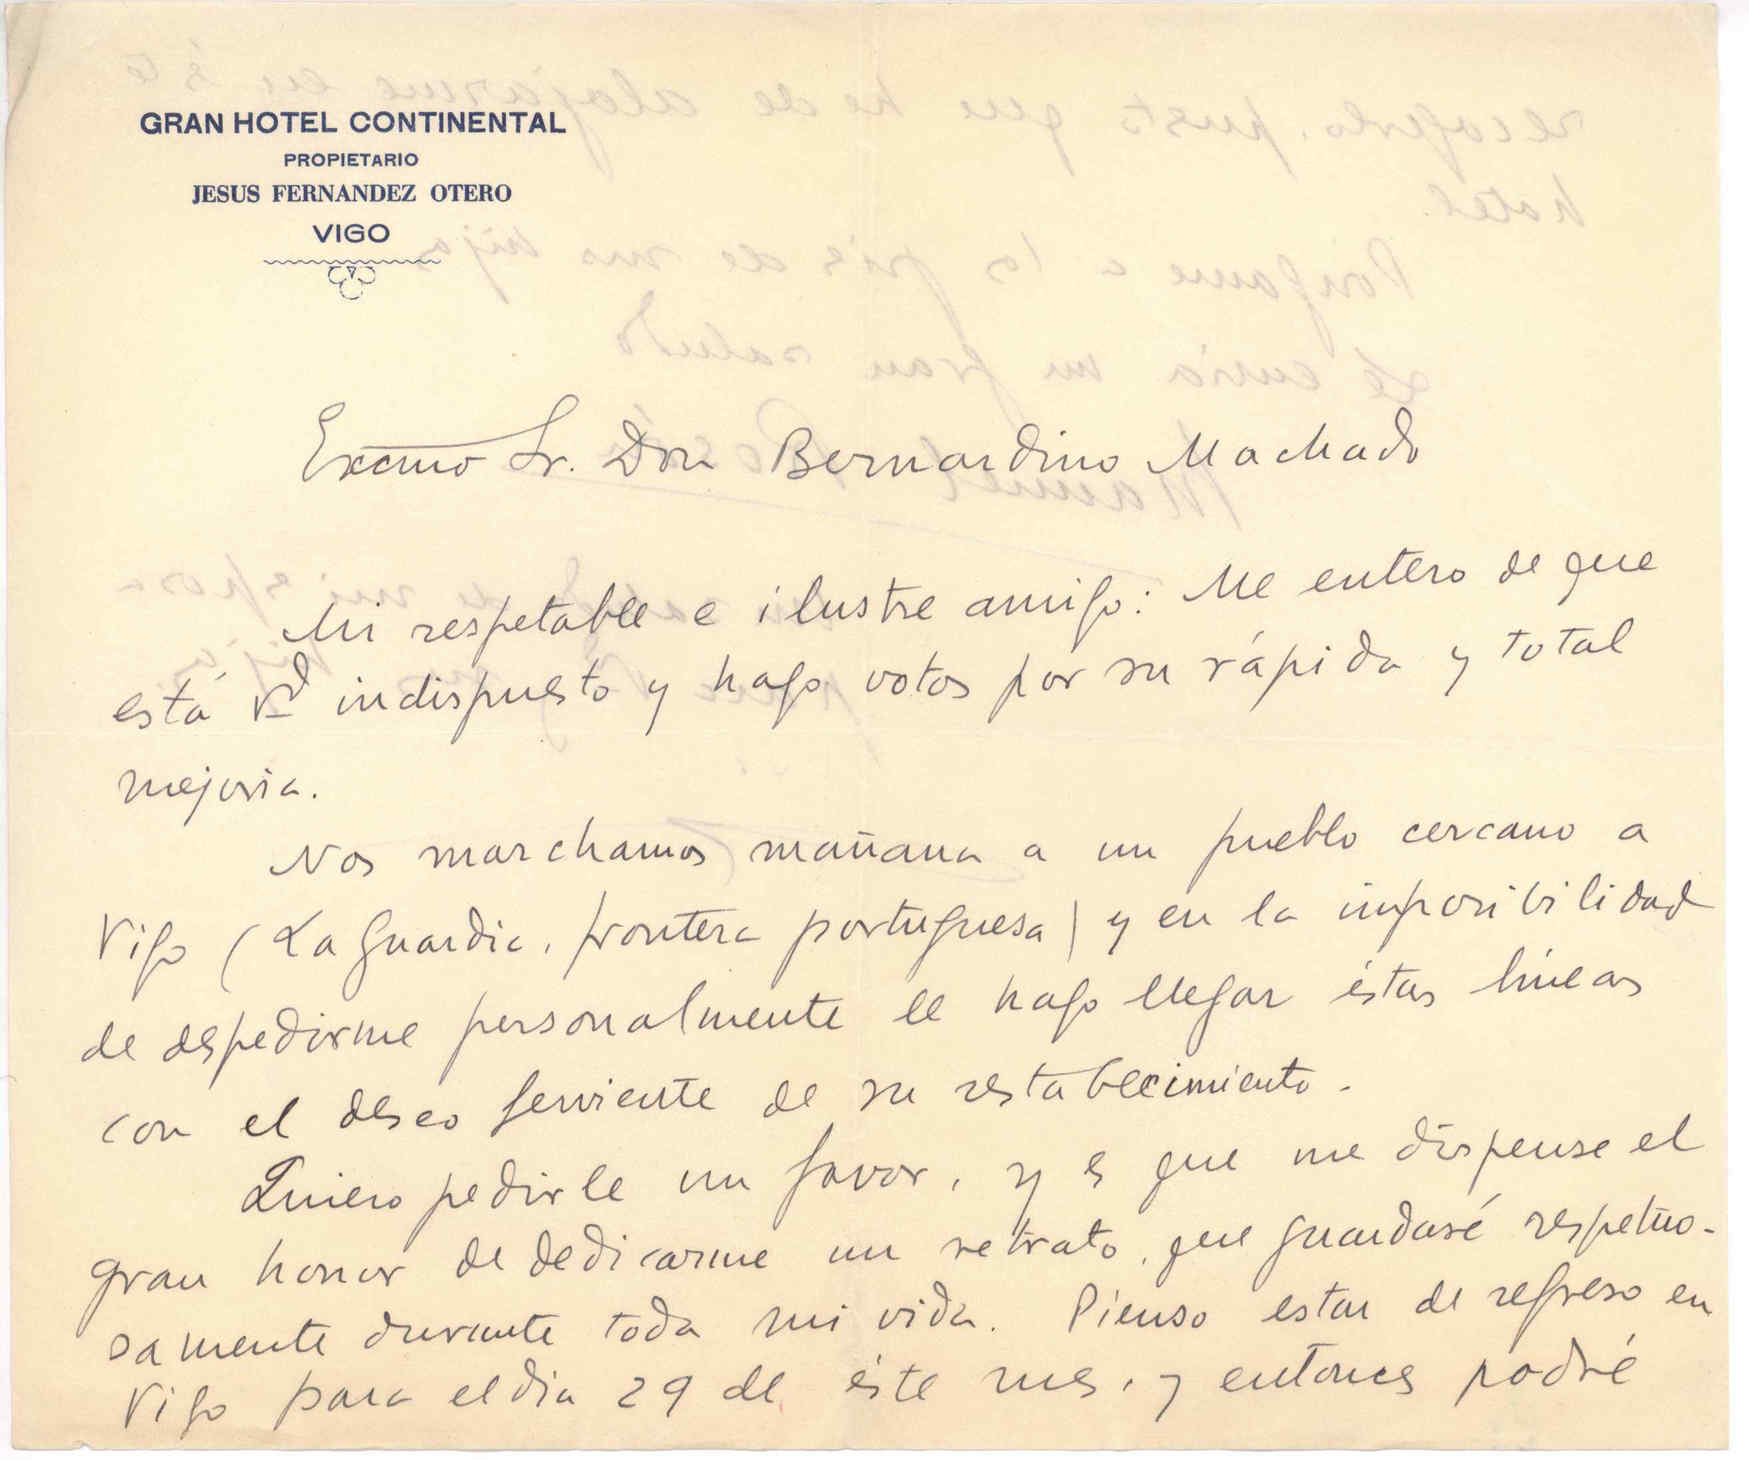 GRAN HOTEL CONTINENTAL
PROPIETARIO
JESUS FERNANDEZ OTERO
VIGO
Excmo Sr. Don Bernardino Machado
Mi respetable e ilustre amigo: Me entero de que
está Vd indispuesto y hago votos por su rápida y total
mejoria.
Nos marchamos mañana a un pueblo cercano a
Vigo (La Guardia, frontera portuguesa) y en la imposibilidad
de despedirme personalmente le hago llegar éstas líneas
con el deseo ferviente de su restablecimiento.
Quiero pedirle un favor, y es que me dispense el
gran honor de dedicarme un retrato, que guardaré respetuo-
samente durante toda mi vida. Pienso estar de regreso en
Vigo para el dia 29 de éste mes, y entonces podré